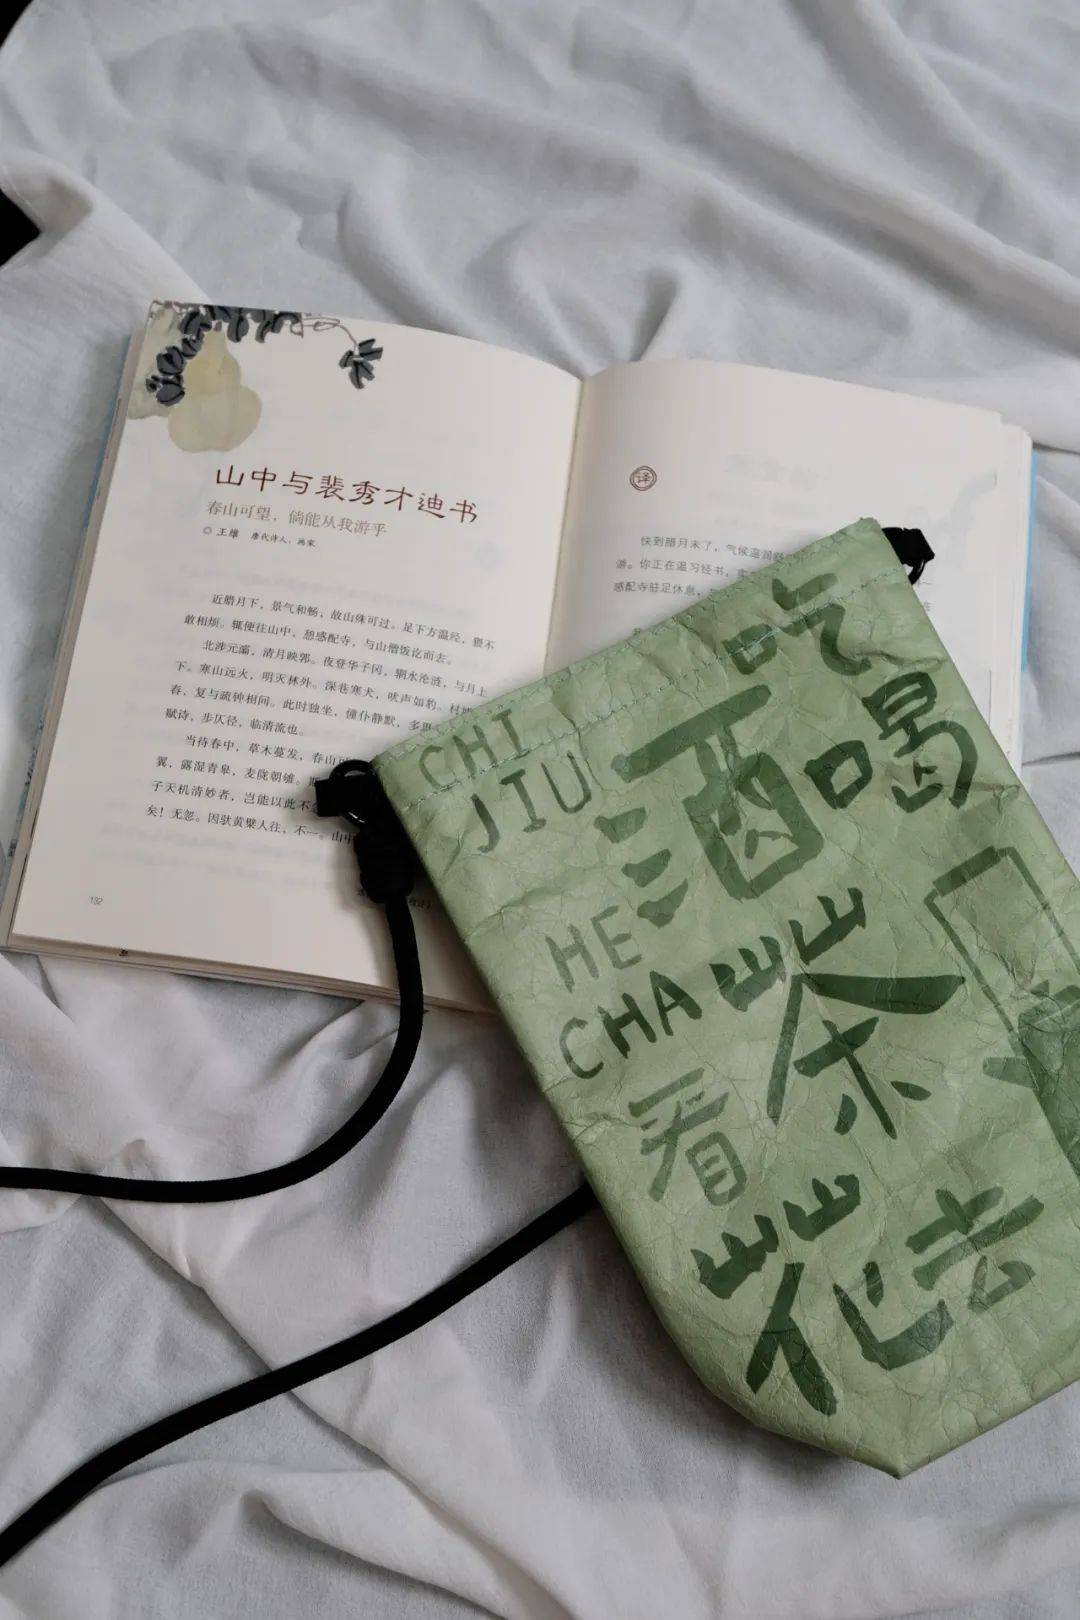 山中与裴秀才迪书
春山可望，倘能从我游乎
◎ 王维 唐代诗人、画家
近腊月下，景气和畅，故山殊可过。足下方温经，猥不
敢相烦。辄便往山中，憩感配寺，与山僧饭讫而去。
北涉元灞，清月映郭。夜登华子冈，辋水沦涟，与月上
下。寒山远火，明灭林外。深巷寒犬，吠声如豹。村
舂，复与疏钟相间。此时独坐，僮仆静默，多
赋诗，步仄径，临清流也。
当待春中，草木蔓发，春山可
翼，露湿青皋，麦陇朝雊。
子天机清妙者，岂能以此不
矣！无忽。因驮黄檗人往，不一。山中
132
译
快到腊月末了，气候温润舒
游。你正在温习经书，
感配寺驻足休息，
吃
CHI
JIU
酒
喝
HE
CHA
茶
看
花
去